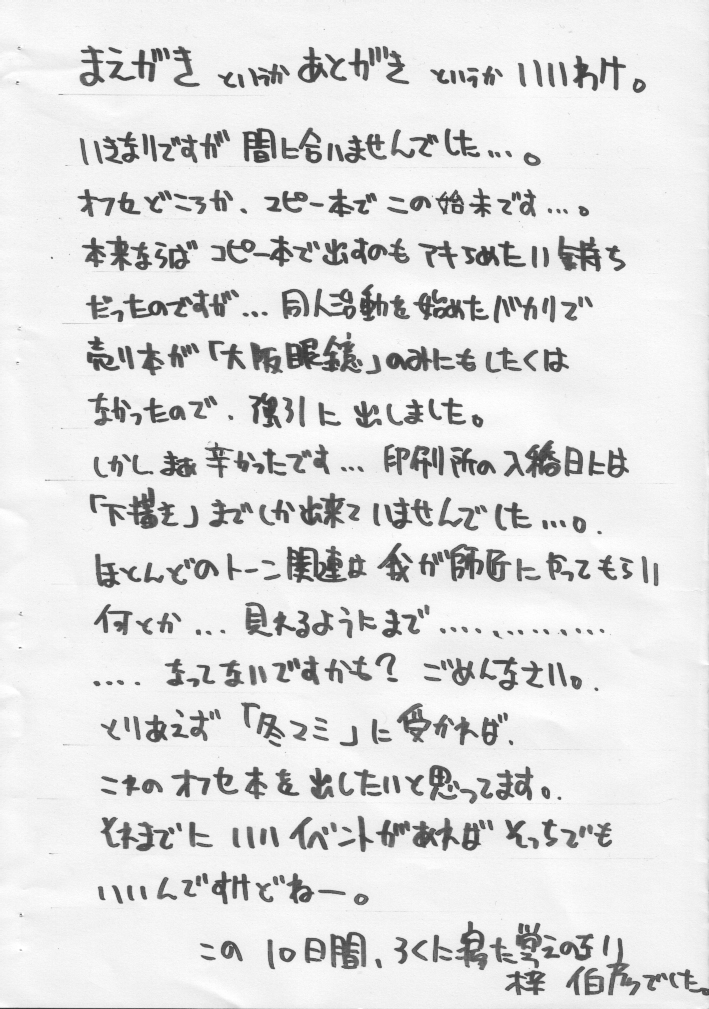 まえがき というか あとがき というか いいわけ。
いきなりですが 間に合いませんでした…。
オフセどころか、コピー本でこの始末です…。
本来ならば コピー本で出すのも アキらめたい気持ち
だったのですが… 同人活動を始めたバカリで
売り本が「大阪眼鏡」のみにもしたくは
なかったので、強引に出しました。
しかし、まぁ 辛かったです… 印刷所の入稿日には
「下描き」までしか出来ていませんでした…。
ほとんどのトーン関連は 我が師匠にやってもらい
何とか … 見れるようにまで ‥‥‥‥‥‥‥
‥‥ なってないですかも? ごめんなさい。
とりあえず 「冬コミ」に 受かれば、
これの オフセ本を 出したいと思ってます。
それまでに いいイベントがあれば そっちでも
いいんですけどねー。
この 10日間、ろくに寝た覚えのない
梓 伯彦でした。